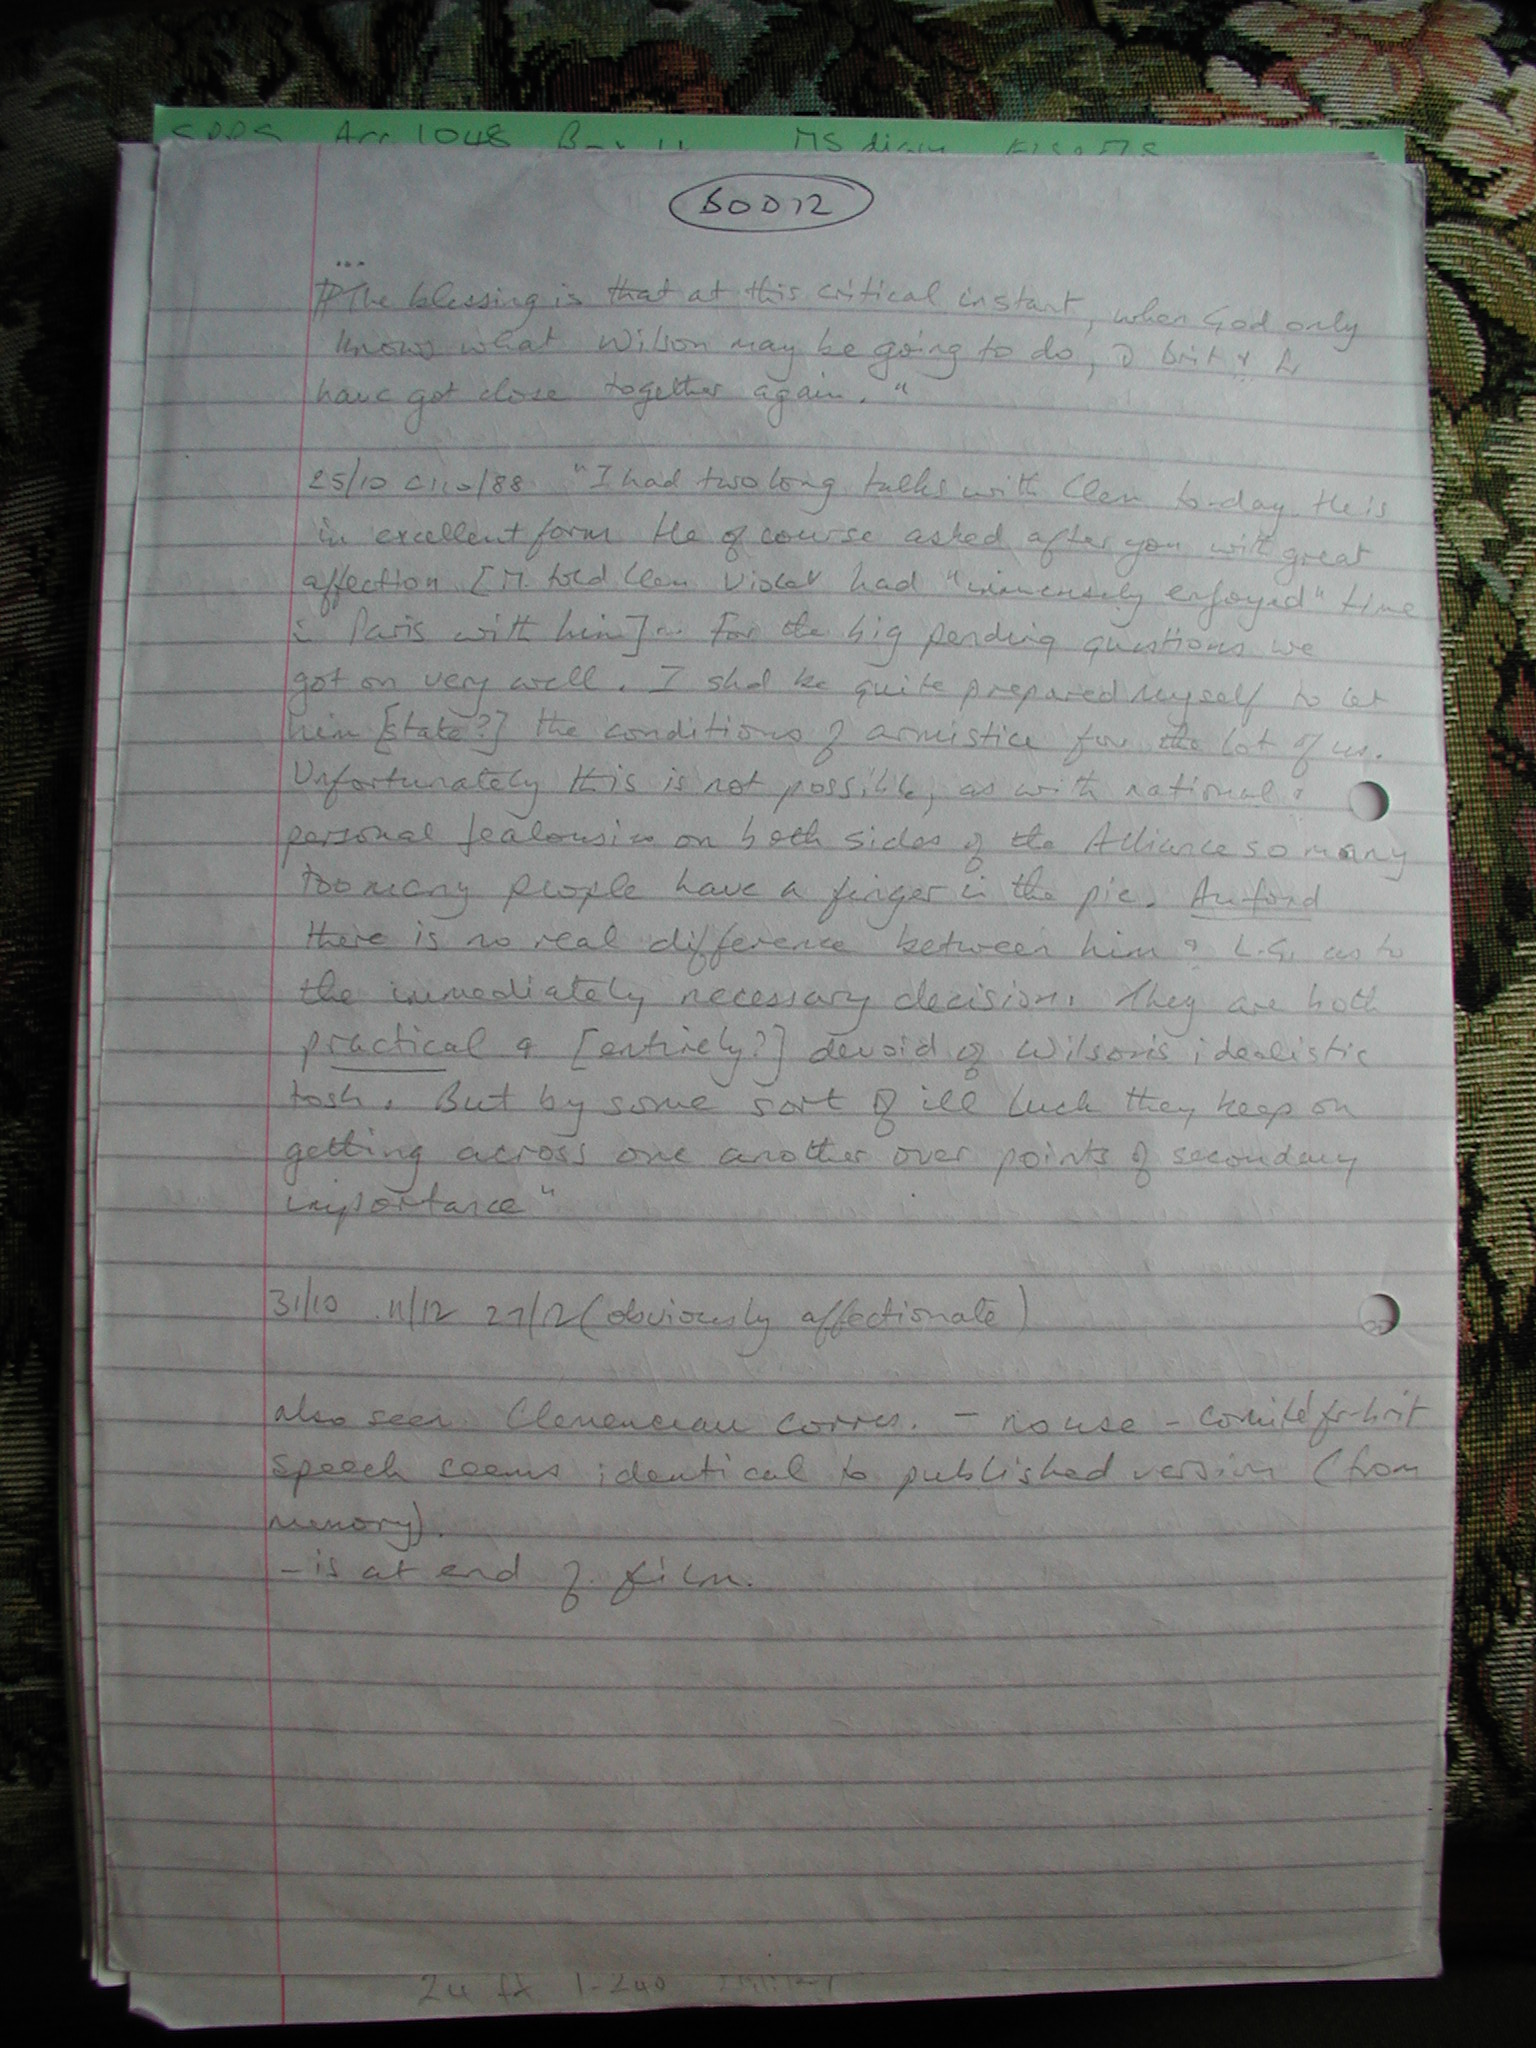 Acc 1048 MS diary
BOD12
...
The blessing is that at this critical instant, when God only
knows what Wilson may be going to do, brit &
have got close together again."
25/10 /88 "I had two long talks with Clem to-day. He is
in excellent form He of course asked after you with great
affection [M told Clem Violet had "immensely enjoyed" time
in Paris with him] .. For the big pending questions we
got on very well. I shd be quite prepared myself to let
him [state?] the conditions of armistice for the lot of us.
Unfortunately this is not possible, as with national &
personal jealousies on both sides of the Alliance so many
too many people have a finger in the pie. Au fond
there is no real difference between him & L.G. as to
the immediately necessary decision. They are both
practical & [entirely?] devoid of Wilson's idealistic
tosh. But by some sort of ill luck they keep on
getting across one another over points of secondary
importance"
31/10 11/12 27/12 (obviously affectionate)
also seen Clemenceau corres. - no use - comité fr-brit
speech seems identical to published version (from
memory).
- is at end of film.
1-240